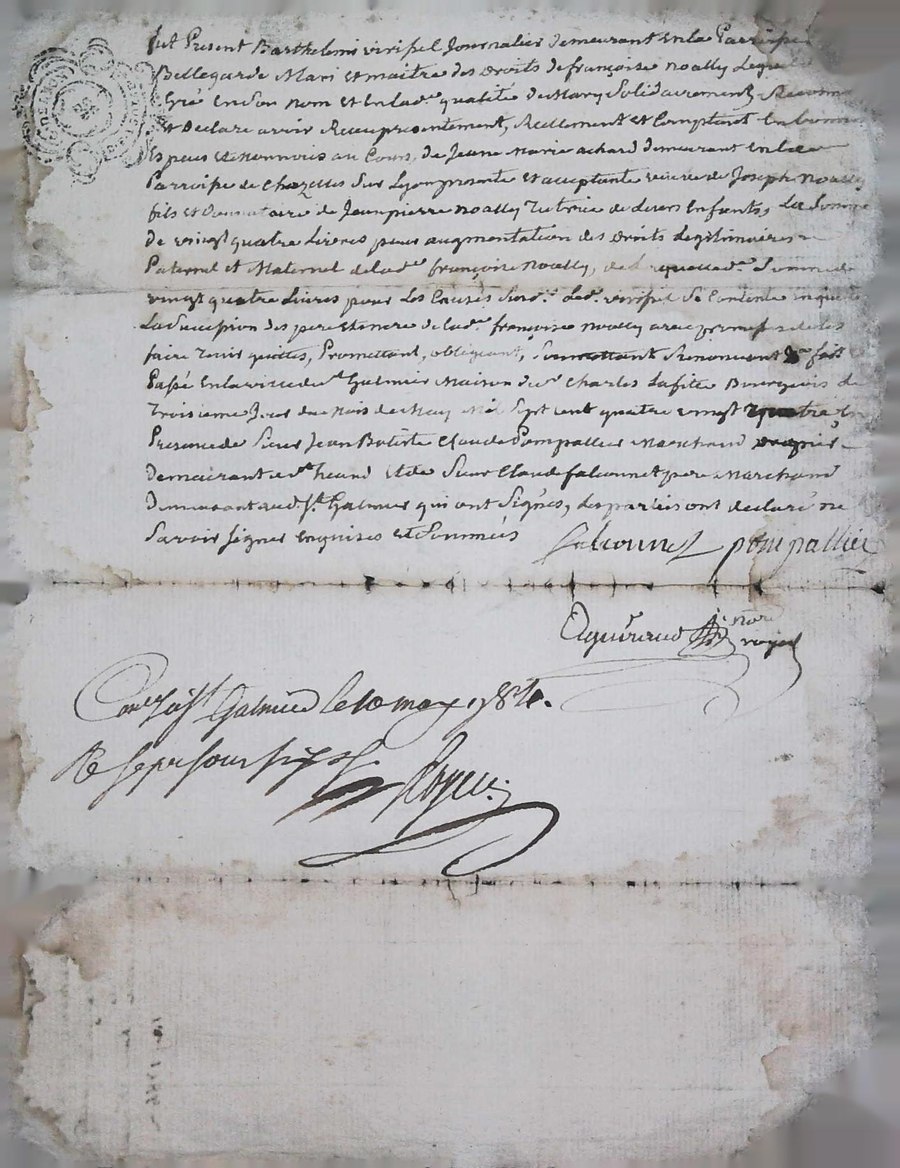 fut Present Barthelemi virissel Journalier demeurant En la Parroisse
Bellegarde Mari et maitre des droits de françoise noally Lequel
Gré En Son nom et En lad.e qualité De Mary Solidairement Reconnu
Et Declare avoir Receu presentement, Reellement et Comptant En bonnes
Especes et monnois au Cours, de Jeane Marie achard demeurant en la
Parroisse de Chazelles Sur Lyon presente et acceptante veuve de Joseph Noally
fils et Donnataire de Jean pierre noally Tutrice de leurs Enfants, La Somme
De vingt quatre Livres pour augmentation des droits Legitimaires
Paternel et Maternel de lad.e françoise Noally, de laquelle d.e Somme de
vingt quatre Livres pour Les Causes Susd. Led. virissel Se Contente en quitte
La Succession des pere et mere de lad.e françoise noally avec promesse de les
faire tenir quittes, Promettant, obligeant, Soumettant Renoncent fait
Passé En la ville de St Galmier Maison de Sr Charles Lafite Bourgeois Le
Troisieme Jour du Mois de May Mil Sept cent quatre vingt quatre En
Presence de Sieur Jean Batiste Claude Pompallier Marchand
Demeurant a St heand Et de Sieur Claude falconnet pere Marchand
Demeurant aud. St Galmier qui ont Signés, des parties ont declaré ne
Savoir signer enquises et Sommées
falconnet pompallier
nore
royal
Con.lé à St Galmier le 10 may 1784.
Rc sept sous six d.